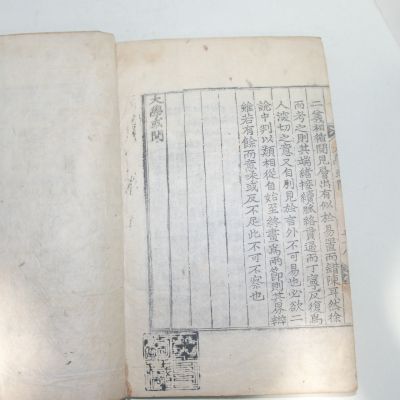 二義相循間見層出有似於易置而錯陳耳然徐
而考之則其端緒接續脉絡貫通而丁寧反復爲
人深切之意又自別見於言外不可易也必欲二
說中判以類相從自始至終畫爲兩節則其界辨
雖若有餘而意味或反不足此不可不察也
大學或問